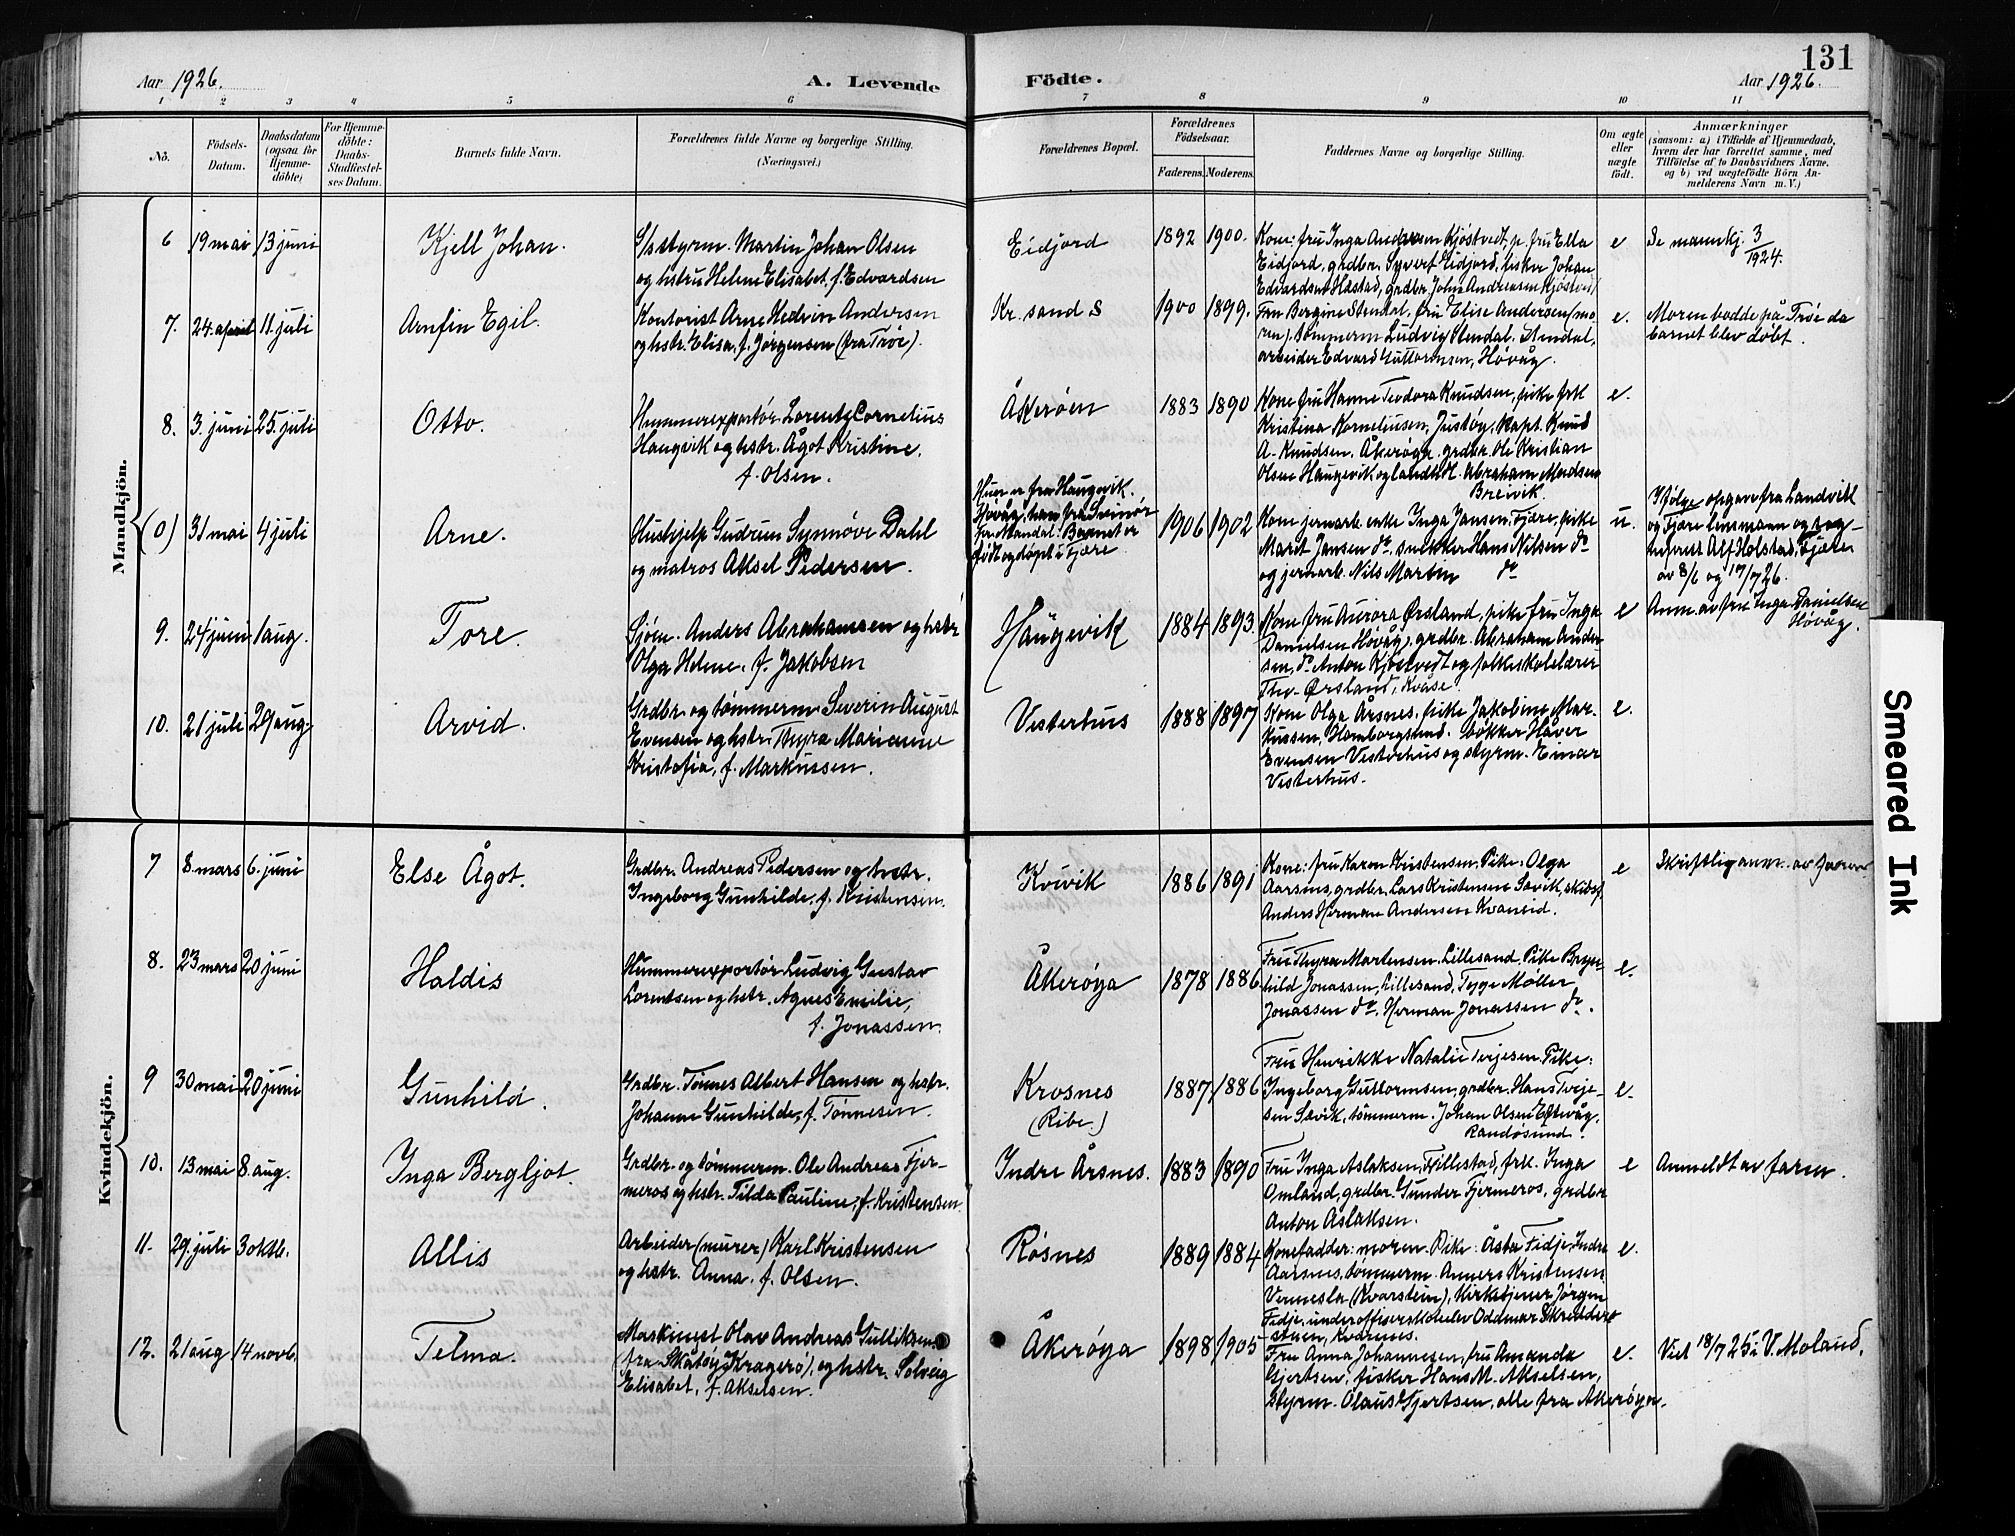 131
Aar 1926.
A. Levende
Födte.
Aar 1926.
1 2 3 4 5 6 7 8 9 10 11
No.
Födsels-
Datum.
Daabsdatum
(ogsaa for
Hjemme-
döbte)
For Hjemme-
döbte:
Daabs-
Stadfæstel-
ses Datum.
Barnets fulde Navn.
Forældrenes fulde Navne og borgerlige Stilling.
(Næringsvei.)
Forældrenes Bopæl.
Forældrenes
Födselsaar.
Faderens. Moderens.
Faddernes Navne og borgerlige Stilling.
Om ægte
eller
uægte
födt.
Anmærkninger
(saasom: a) i Tilfælde af Hjemmedaab,
hvem der har forrettet samme, med
Tilföielse af to Daabsvidners Navne.
og b) ved uægtefödte Börn An-
melderens Navn m. V.)
Mandkjön.
6 19 mai 13 juni
Kjell Johan.
S/s styrm. Martin Johan Olsen
og hstru Helene Elisabet, f. Edvardsen
Eidjord
1892 1900.
Kone: fru Inga Andersen Kjøstvedt, p. fru Ella
Eidjord, grdbr. Syvert Eidjord, fisker Johan
Edvardsen Hæstad, grdbr. John Andreasen Kjøstvedt
e
Se mannkj. 3/1924.
7. 24. april 11. juli
Arnfin Egil.
Kontorist Arne Hedvin Andersen
og hstr. Elisa, f. Jørgensen (fra Trøe).
Kr. sand S
1900 1899.
Fru Bergine Stendal, fru Elise Andersen (mo-
ren), tømmerm. Ludvig Stendal, Arendal,
arbeider Edvard Guttormsen, Høvåg.
e.
Moren bodde på Trøe da
barnet blev døbt.
8. 3. juni 25. juli
Otto.
Hummerexportør Lorentz Cornelius
Haugvik og hstr. Ågot Kristine,
f. Olsen.
Åkerøen
1883 1890
Kone fru Hanne Teodora Knudsen, pike frk
Kristina Korneliusen, Justøy, kapt. Knud
A. Knudsen, Åkerøya, grdbr. Ole Kristian
Olsen Haugevik og landh. Abraham Madsen
Breivik.
e.
(0) 31 mai 4 juli
Arne.
Hushjelp Gudrun Synnøve Dahl
og matros Aksel Pedersen.
Hun er fra Haugevik.
Høvåg, han fra Svinør
pr. Mandal. Barnet er
født og døpt i Fjære
1906 1902
Kone jernarb. enke Inga Jansen, Fjære, pike
Marit Jansen do, snekker Hans Nilsen do
og jernarb. Nils Martin do
u.
Ifølge opgave fra Landvik
og Fjære lensmann og sog-
neprest Alf Holstad, Fjære
av 8/6 og 17/7 26.
9. 24 juni 1 aug.
Tore.
Sjøm. Anders Abrahamsen og hstr
Olga Helene, f. Jakobsen
Haugevik
1884 1893.
Kone fru Aurora Ørsland, pike fru Inga
Danielsen Høvåg, grdbr. Abraham Ander-
sen, do Anton Kjøstvedt og folkeskolelærer
Ths. Ørsland, Kvåse.
e
Anm. av fru Inga Danielsen
Høvåg.
10. 21 juli 29 aug.
Arvid.
Grdbr. og tømmerm. Severin August
Evensen og hstr. Thyra Marianne
Kristofia, f. Markussen.
Vesterhus
1888 1897
Kone Olga Årsnes, pike Jakobine Mar-
kussen, Homborgsund. bøkker Håver
Evensen Vesterhus og styrm. Einar
Vesterhus.
e.
Kvindekjön.
7 8. mars 6. juni
Else Ågot.
Grdbr. Andreas Pedersen og hstr.
Ingeborg Gunhilde, f. Kristensen.
Kvivik
1886 1891
Kone: fru Karen Kristensen. Pike: Olga
Aarsnes, grdbr. Lars Kristensen Sævik, skibsf.
Anders Herman Andersen Kvaneid.
e
Skriftlig anm. av
8. 23 mars 20 juni
Haldis
Hummerexportør Ludvig Gustav
Lorentsen og hstr. Agnes Emilie,
f. Jonassen.
Åkerøya
1878 1886
Fru Thyra Martensen, Lillesand. Pike Bryn-
hild Jonassen, Lillesand, Tyge Møller
Jonassen do, Herman Jonassen do.
e.
9 30 mai 20 juni
Gunhild.
Grdbr. Tønnes Albert Hansen og hstr.
Johanne Gunhilde, f. Tønnesen.
Krosnes
(Ribe.)
1887. 1886
Fru Henrikke Natalie Terjesen. Pike:
Ingeborg Guttormsen, grdbr. Hans Terje-
sen Sævik, tømmerm. Johan Olsen Eftevåg,
Randøsund.
e.
10. 13 mai 8. aug.
Inga Bergljot.
Grdbr. og tømmerm. Ole Andreas Fjer-
meros og hstr. Tilda Pauline, f. Kristensen.
Indre Årsnes.
1883 1890
Fru Inga Aslaksen, Fillestad, frk. Inga
Omland, grdbr. Gunder Fjermeros, grdbr
Anton Aslaksen.
e
Anmeldt av faren.
11. 29. juli 3 oktb.
Allis
Arbeider (murer) Karl Kristensen
og hstr. Anna, f. Olsen.
Røsnes
1889 1884
Konefadder: moren. Pike: Åsta Fidje, Indre
Aarsnes, tømmerm. Anners Kristensen
Vennesla (Kvarstein), kirketjener Jørgen
Fidje, underofficerskoleelev Oddmar Skredder-
stuen, Kvarenes.
e.
12. 21 aug 14 novb.
Telma.
Maskinist Olav Andreas Gulliksen
(fra Skåtøy, Kragerø), og hstr. Solveig
Elisabet, f. Akselsen.
Åkerøya
1898 1905
Fru Anna Johannesen, fru Amanda
Gjertsen, fisker Hans M. Akselsen,
styrm. Olaus Gjertsen, alle fra Åkerøya.
e.
Viet 18/7 25 i V. Moland.
Smeared Ink